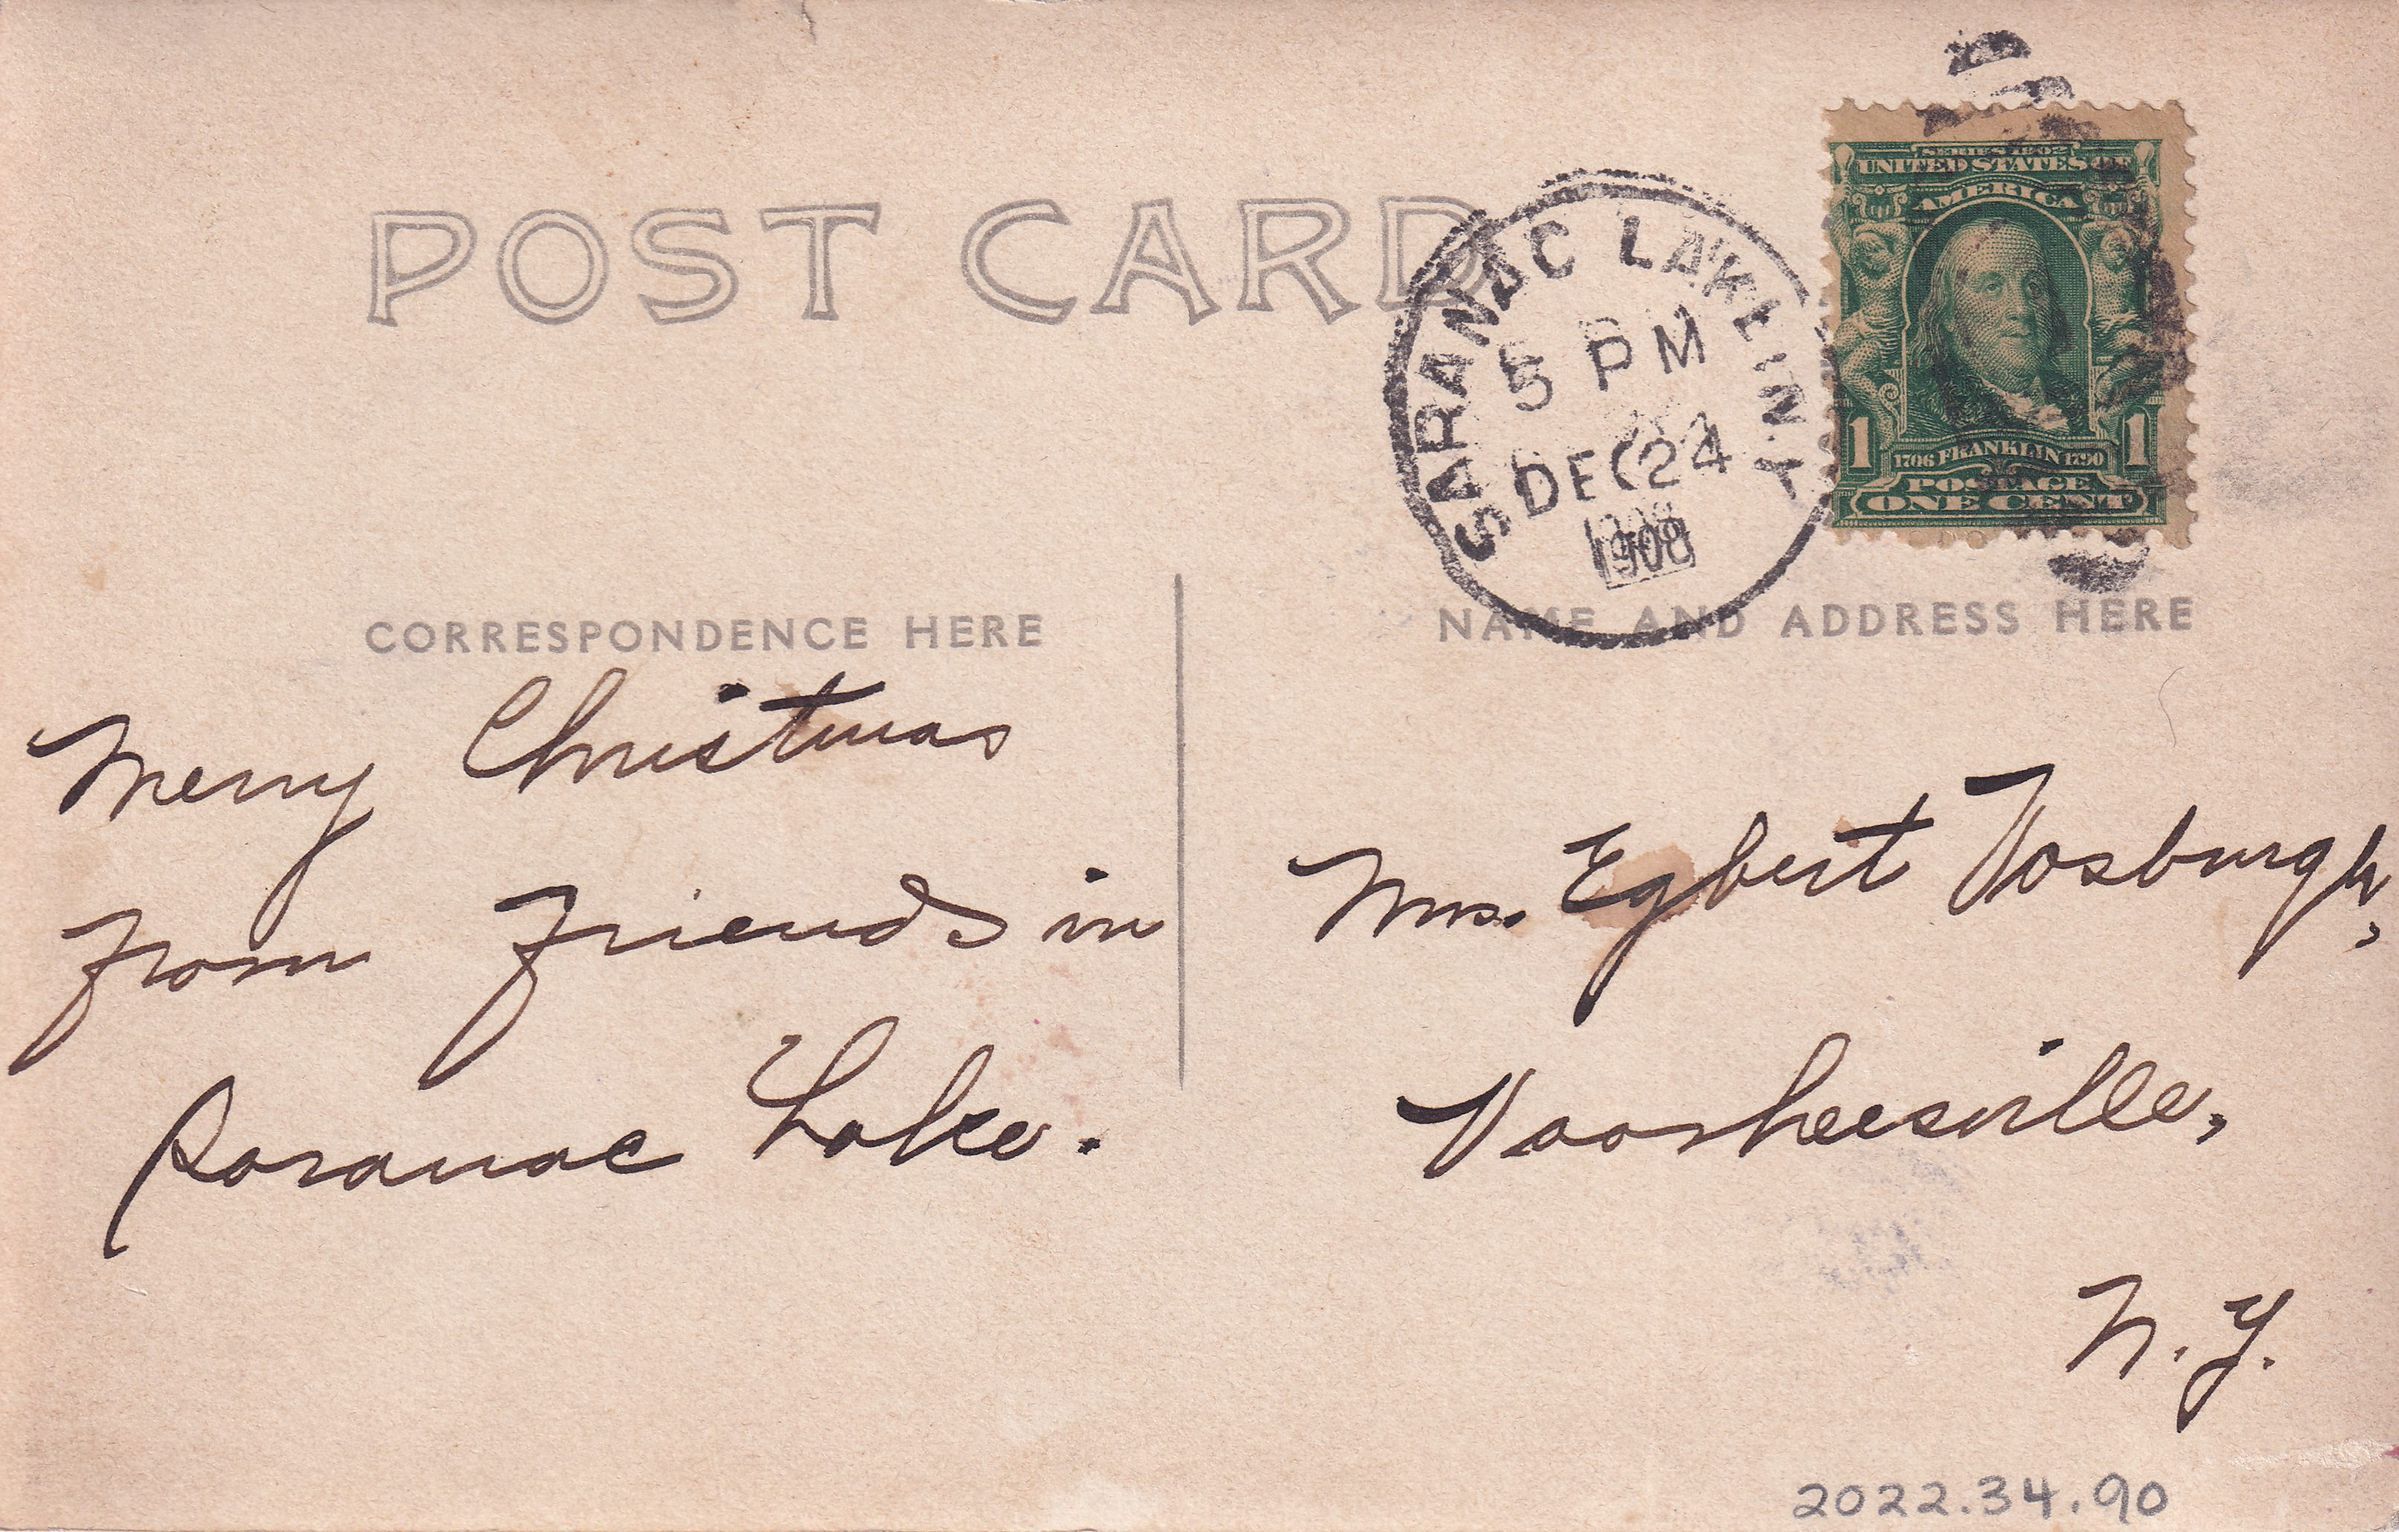 POST CARD
SARANAC LAKE, N.Y.
5 PM
DEC 24
1908
SERIES 1902
UNITED STATES OF
AMERICA
1706 FRANKLIN 1790
1 1
POSTAGE
ONE CENT
CORRESPONDENCE HERE
NAME AND ADDRESS HERE
Merry Christmas
from Friends in
Saranac Lake.
Mrs. Egbert Vosburgh,
Voorheesville,
N.Y.
2022.34.90